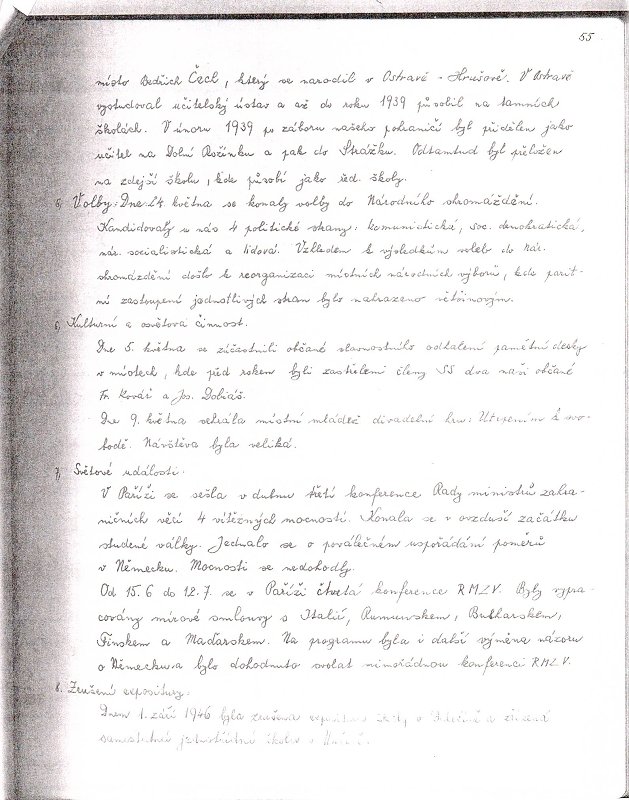 55
místo Bedřich Čech, který se narodil v Ostravě - Hrušově. V Ostravě
vystudoval učitelský ústav a až do roku 1939 působil na tamních
školách. V únoru 1939 po záboru našeho pohraničí byl přidělen jako
učitel na Dolní Rožínku a pak do Strážku. Odtamtud byl přeložen
na zdejší školu, kde působí jako řed. školy.
5, Volby: Dne 24. května se konaly volby do Národního shromáždění.
Kandidovaly u nás 4 politické strany: komunistická, soc. demokratická,
nár. socialistická a lidová. Vzhledem k výsledkům voleb do Nár.
shromáždění došlo k reorganizaci místních národních výborů, kde parit-
ní zastoupení jednotlivých stran bylo nahrazeno většinovým.
6, Kulturní a osvětová činnost.
Dne 5. května se zúčastnili občané slavnostního odhalení pamětní desky
v místech, kde před rokem byli zastřeleni členy SS dva naši občané
Fr. Kovář a Jos. Dobiáš.
Dne 9. května sehrála místní mládež divadelní hru: Utrpením k svo-
bodě. Návštěva byla veliká.
7, Světové události.
V Paříži se sešla v dubnu třetí konference Rady ministrů zahra-
ničních věcí 4 vítězných mocností. Konala se v ovzduší začátku
studené války. Jednalo se o poválečném uspořádání poměrů
v Německu. Mocnosti se nedohodly.
Od 15.6 do 12.7. se v Paříži čtvrtá konference RMZV. Byly vypra-
covány mírové smlouvy s Itálií, Rumunskem, Bulharskem,
Finskem a Maďarskem. Na programu byla i další výměna názorů
o Německu a bylo dohodnuto svolat mimořádnou konferenci RMZV.
8. Zrušení expositury.
Dnem 1. září 1946 byla zrušena expositura v a zřízena
samostatná jednotřídní škola v